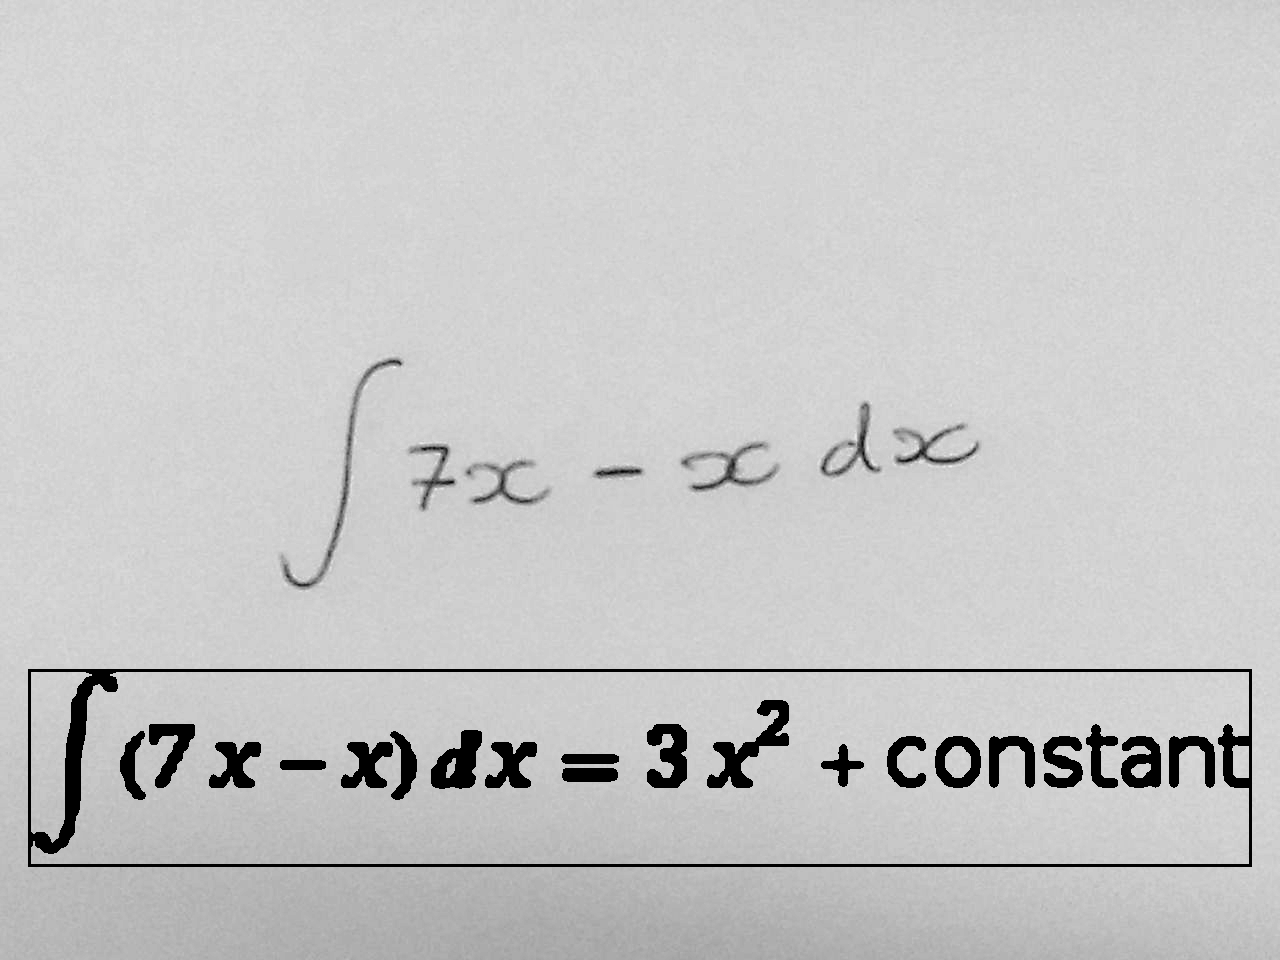 ∫ 7x - x dx
∫ (7 x - x) dx = 3 x² + constant